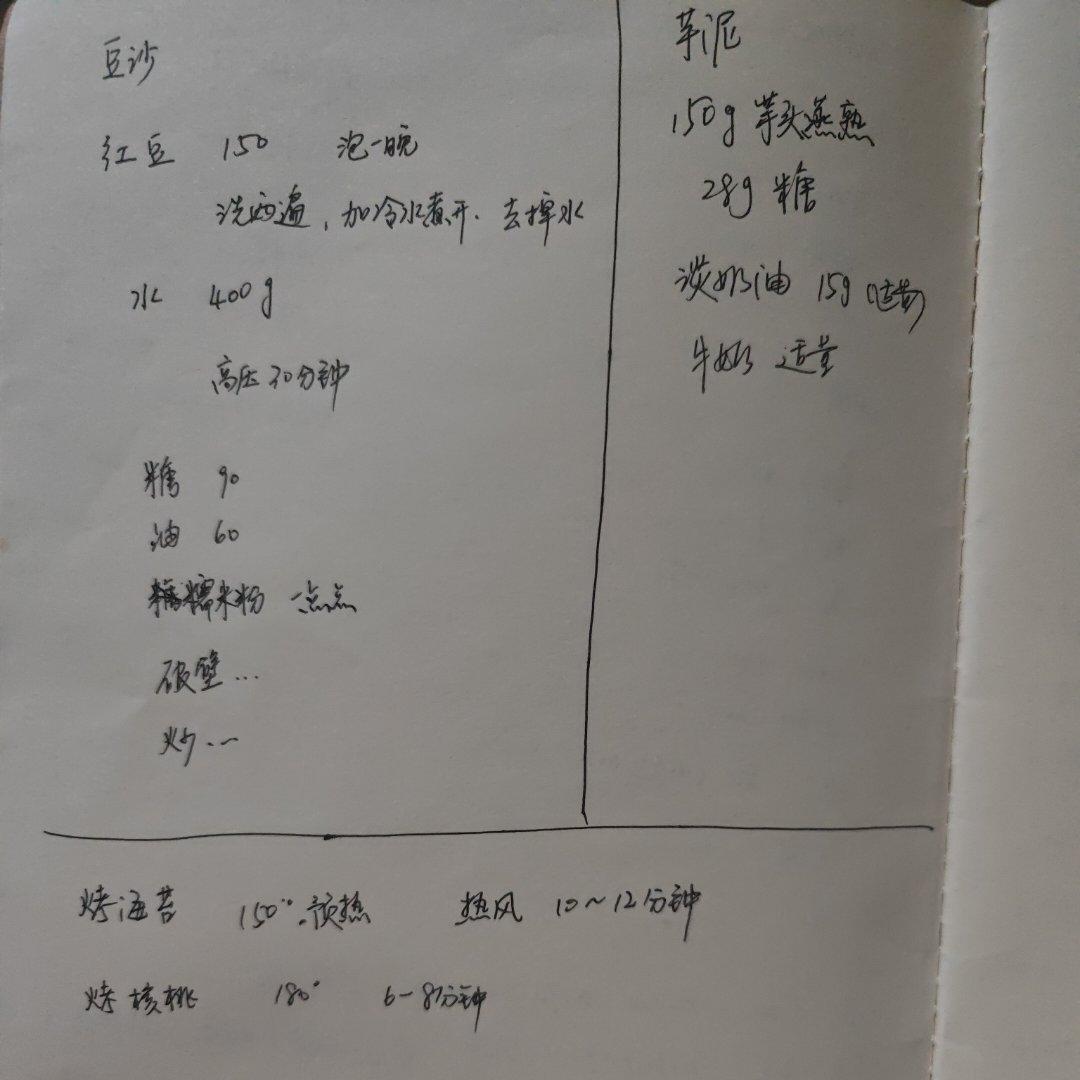 豆沙
红豆 150 泡一晚
洗两遍,加冷水煮开.去掉水
水 400g
高压30分钟
糖 90
油 60
糯米粉 一点点
破壁...
炒...
芋泥
150g 芋头蒸熟
28g 糖
淡奶油 15g
牛奶 适量
烤海苔 150°预热 热风 10~12分钟
烤核桃 180° 6-8分钟